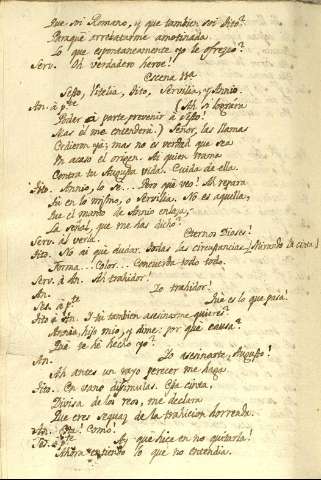 Que soi Romano, y que tambien soi Tito?
Paraque arrebatarme amotinada
Lo que espontaneamente yo le ofrezco?
Serv. Oh verdadero heroe!
Escena
Sesto, Vitelia, Tito, Servilia, y Annio.
An. á pte (Ah si lograra
Poder á parte prevenir á Sesto!
Mas el me entenderá.) Señor, las llamas
Cedieron yá; mas no es verdad que sea
Un acaso el origen. Ai quien trama
Contra tu Augusta vida. Cuida de ella.
Tito. Annio, lo se... Pero qué veo! Ah repara
Tu en lo mismo, o Servilia. No es aquella,
Que el manto de Annio enlaza,
La señal, que me has dicho?
Serv. al verla. Eternos Dioses!
Tito. No ai que dudar. Todas las circunstancias [Mirando la cinta]
Forma... Color... Concuerda todo todo.
Serv. á An. Ah trahidor!
An. Yo trahidor!
Ses. á pte Qué es lo que pasa!
Tito á An. I tu tambien asesinarme quieres?
Annio, hijo mio, y dime: por qué causa?
Qué te hé hecho yo?
An. Yo asesinarte, Augusto!
Ah antes un rayo perecer me haga.
Tito. En vano disimulas. Esa cinta,
Divisa de los reos, me declara
Que eres sequaz de la trahicion horrenda.
An. Esta! Como!
Ses. á pte Ay que hice en no quitarla!
Ahora entiendo lo que no entendia.